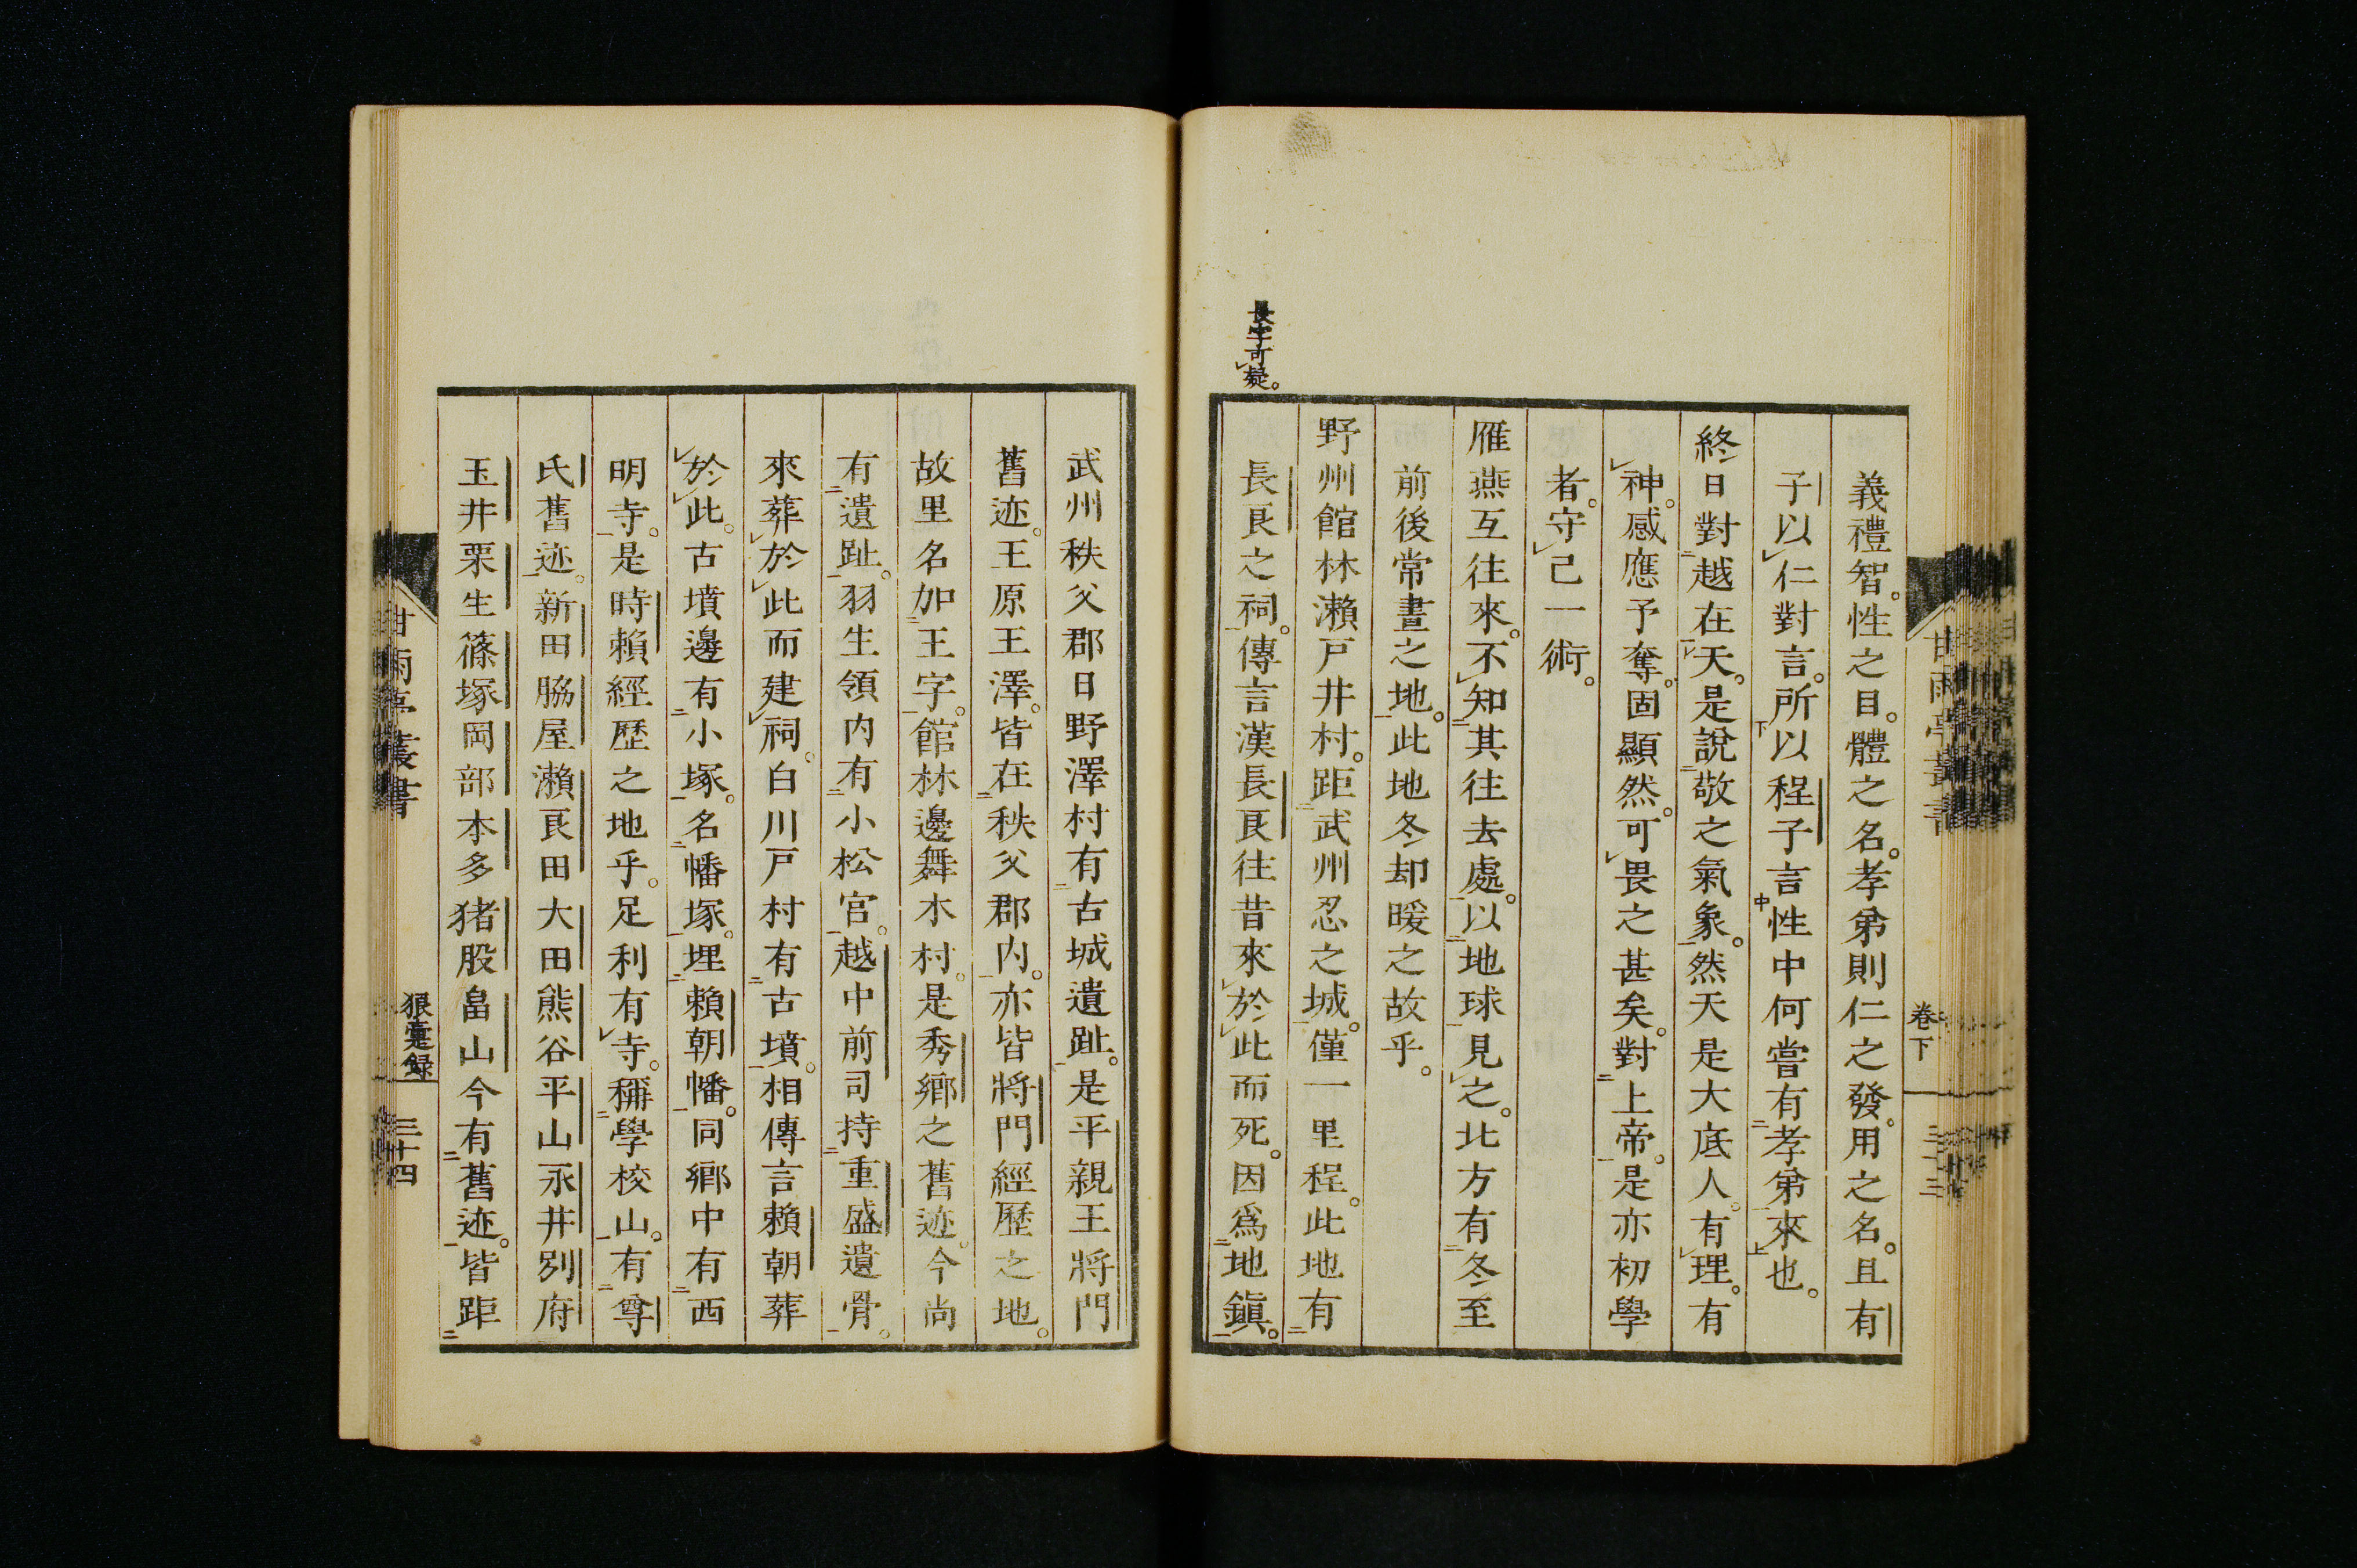 義禮智。性之目。體之名。孝弟則仁之發。用之名。且有
子以仁對言。所以程子言性中何嘗有孝弟來也。
終日對越在天。是說敬之氣象。然天是大底人。有理。有
神。感應予奪。固顯然。可畏之甚矣。對上帝。是亦初學
者。守己一術。
雁燕互往來。不知其往去處。以地球見之。北方有冬至
前後常晝之地。此地冬却暖之故乎。
野州館林瀨戸井村。距武州忍之城。僅一里程。此地有
長字可疑。
長良之祠。傳言漢長良往昔來於此而死。因爲地鎭。
卷下
武州秩父郡日野澤村有古城遺趾。是平親王將門
舊迹。王原王澤。皆在秩父郡内。亦皆將門經歷之地。
故里名加王字。館林邊舞木村。是秀鄉之舊迹。今尚
有遺趾。羽生領内有小松宮。越中前司持重盛遺骨。
來葬於此而建祠。白川戸村有古墳。相傳言賴朝葬
於此。古墳邊有小塚。名幡塚。埋賴朝幡。同鄉中有西
明寺。是時賴經歷之地乎。足利有寺。稱學校山。有尊
氏舊迹。新田脇屋瀨良田大田熊谷平山永井別府
玉井栗生篠塚岡部本多猪股畠山今有舊迹。皆距
甘雨亭叢書
狼疐録
三十四